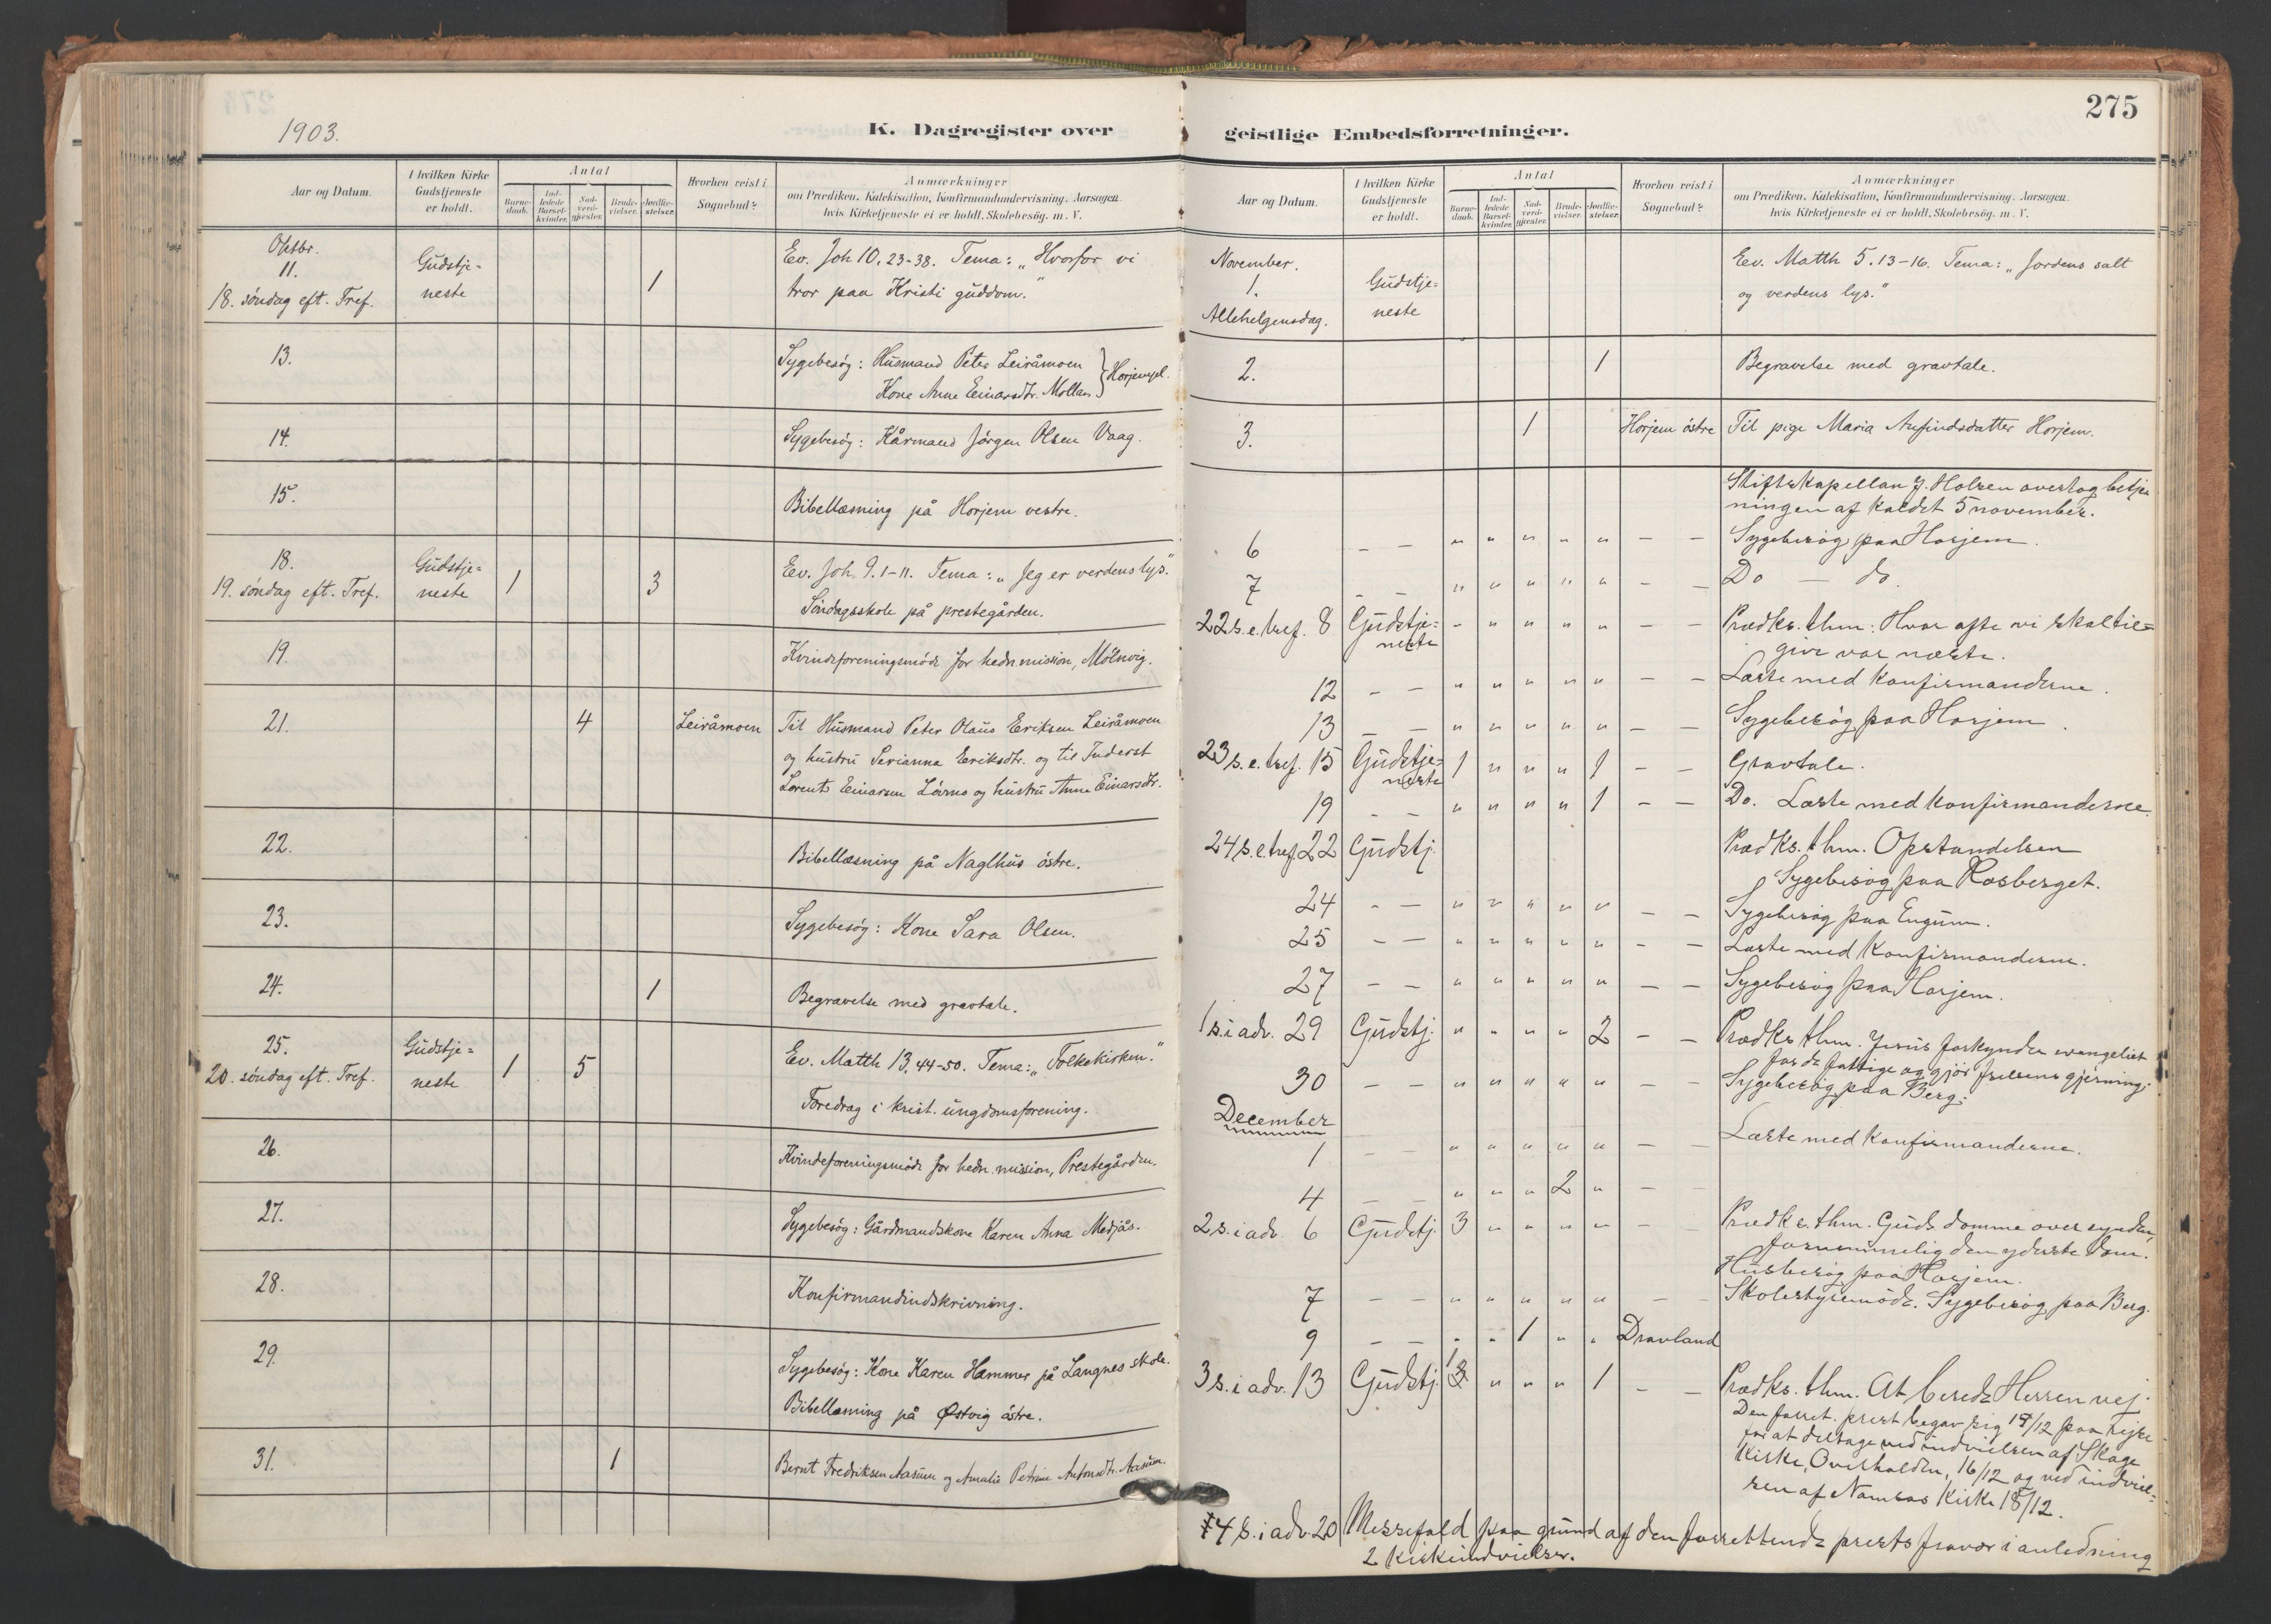 1903.
K. Dagregister over
Aar og Datum.
I hvilken Kirke Gudstjeneste er holdt.
Antal
Barnedaab.
Indledede Barselkvinder.
Nadverdgjester.
Brudevielser.
Jordfæstelser.
Hvorhen reist i Sognebud?
Anmærkninger
om Prædiken. Katekisation, Konfirmandundervisning. Aarsagen
hvis Kirketjeneste ei er holdt. Skolebesög. m. V.
Oktbr.
11. Gudstje- 1 Ev. Joh 10, 23-38. Tema: „Hvorfor vi
18. söndag eft. Tref. neste tror paa Kristi guddom."
13. Sygebesög: Husmand Peter Leiråmoen } Horjemspl.
Kone Anne Einarsdtr. Mollan
14. Sygebesög: Kårmand Jörgen Olsen Vaag.
15. Bibellæsning på Horjem vestre.
18. Gudstje- 1 3 Ev. Joh. 9. 1-11. Tema: „Jeg er verdens lys."
19. söndag eft. Tref. neste Söndagsskole på prestegården.
19. Kvindeforeningsmöde for hedn mission, Mölnvig.
21. 4 Leiråmoen Til Husmand Peter Olaus Eriksen Leiråmoen
og hustru Serianna Eriksdtr. og til Inderst
Lorents Einarsen Lövmo og hustru Anne Einarsdtr.
22. Bibellæsning på Naglhus östre.
23. Sygebesög: Kone Sara Olsen.
24. 1 Begravelse med gravtale.
25. Gudstje- 1 5 Ev. Matth 13, 44-50. Tema: „Folkekirken."
20. söndag eft. Tref. neste
Foredrag i krist. ungdomsforening.
26. Kvindeforeningsmöde for hedn. mission, Prestegården.
27. Sygebesög: Gårdmandskone Karen Anna Medjås.
28. Konfirmandindskrivning.
29. Sygebesög: Kone Karen Hammer på Langnes skole.
Bibellæsning på Østvig östre.
31. 1 Bernt Fredriksen Aasum og Amalie Petrine Antonsdtr. Aasum.
275
geistlige Embedsforretninger.
Aar og Datum.
I hvilken Kirke Gudstjeneste er holdt.
Antal
Barnedaab.
Indledede Barselkvinder.
Nadverdgjester.
Brudevielser.
Jordfæstelser.
Hvorhen reist i Sognebud?
Anmærkninger
om Prædiken. Katekisation, Konfirmandundervisning. Aarsagen
hvis Kirketjeneste ei er holdt. Skolebesög. m. V.
November.
1. Gudstje- Ev. Matth 5. 13-16. Tema: „Jordens salt
Allehelgensdag. neste og verdens lys."
2. 1 Begravelse med gravtale.
3. 1 Horjem östre Til pige Maria Arfindsdatter Horjem.
Stiftskapellan J. Holsen overtog betje
ningen af kaldet 5 november.
6 – – " " " " " – – Sygebesög paa Horjem.
7 – – " " " " " – – Do — do.
22 s. e. tref. 8 Gudstje- " " " " " – – Prædks. thm: Hvor ofte vi skal til=
neste give vor næste.
12 – – " " " " " – – Læste med konfirmanderne.
13 – – " " " " " – – Sygebesög paa Horjem.
23 s. e. tref. 15 Gudstje- 1 " " " 1 – – Gravtale.
neste
19 – – " " " " 1 – – Do. Læste med konfirmanderne.
24 s. e. tref. 22 Gudstj. Prædks. thm. Opstandelsen
Sygebesög paa Rosberget.
24 – – " " " " " – – Sygebesög paa Engum.
25 – – " " " " " – – Læste med konfirmanderne.
27 – – " " " " " – – Sygebesög paa Horjem.
1 s. i adv. 29 Gudstj. " " " " 2 – – Prædks thm. Jesus forkynder evangeliet
for de fattige og gjör frelsens gjerning.
30 – – " " " " " – – Sygebesög paa Berg.
December
1 – – " " " " " – – Læste med konfirmanderne.
4 – – " " " 2 " – –
2 s. i adv. 6 Gudstj. 3 " " " " – – Prædks. thm. Guds domme over synden,
fornemmelig den yderste dom.
Husbesög paa Horjem.
7 – – " " " " " – – Skolestyremöde. Sygebesög paa Berg.
9 – – " " 1 " " Dravland
3 s. i adv. 13 Gudstj. 1 " " " 1 – – Prædks. thm. At berede Herren vej.
Den forret. prest begav sig 14/12 paa rejse
for at deltage ved indvielsen af Skage
kirke, Overhalden, 16/12 og ved indviel=
sen af Namsos Kirke 18/12.
4 s. i adv. 20 Messefald paa grund af den forrettende prests fravær i anledning
2 kirkeindvielser.